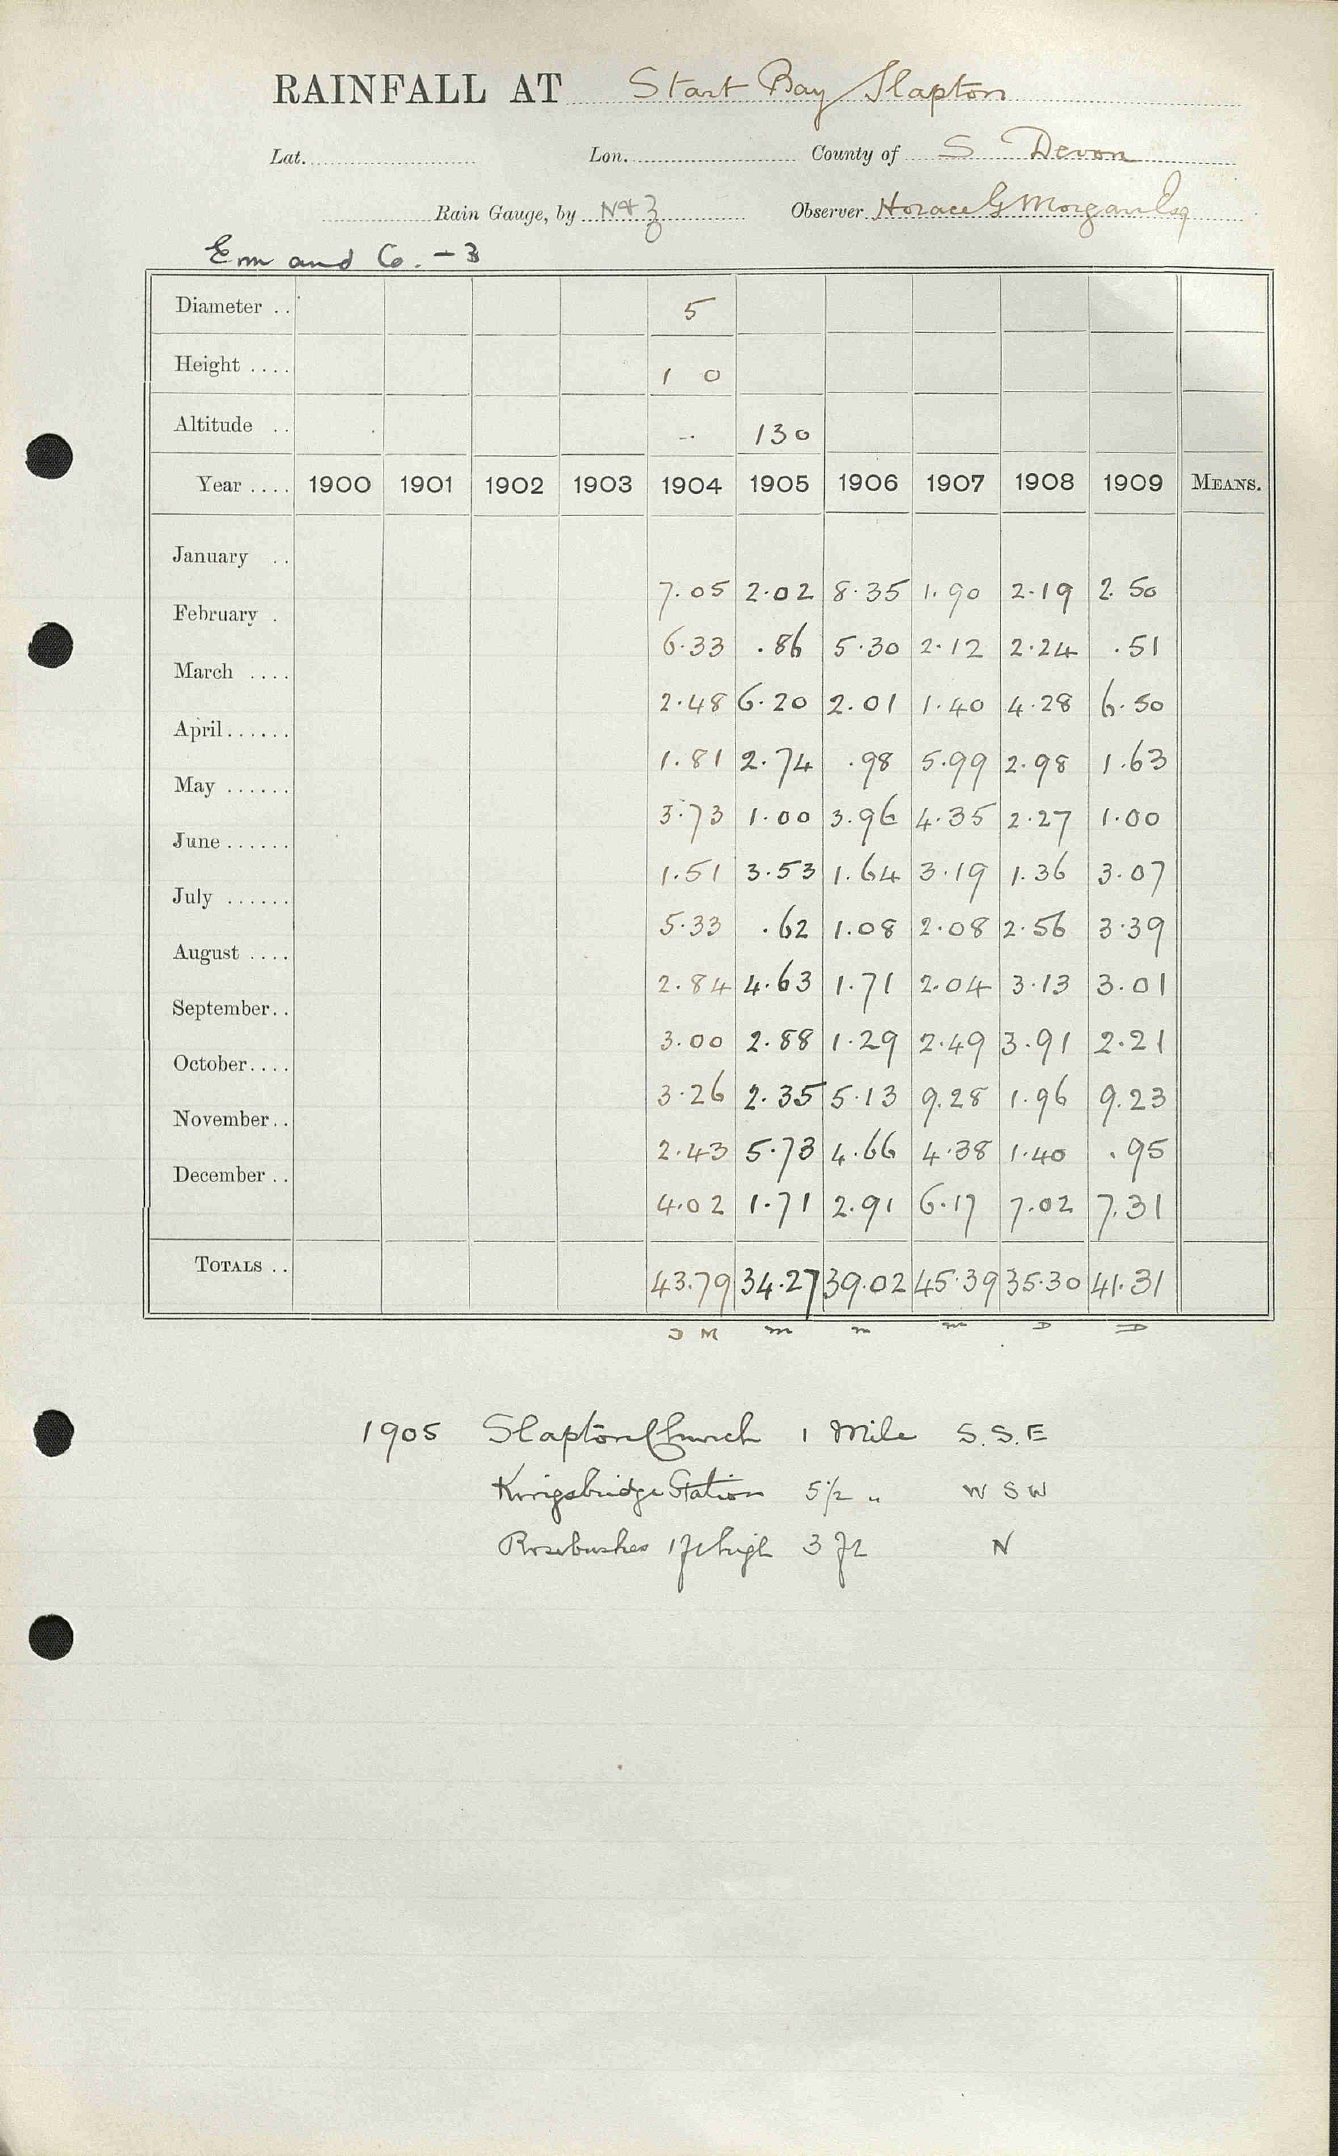 RAINFALL AT Start Bay Slapton
Lat. Lon. County of S Devon
Rain Gauge, by N & Z Observer Horace G Morgan Esq
and Co. - 3
Diameter .. 5
Height .... 1 0
Altitude .. - 130
Year .... 1900 1901 1902 1903 1904 1905 1906 1907 1908 1909 MEANS.
January .. 7.05 2.02 8.35 1.90 2.19 2.50
February . 6.33 .86 5.30 2.12 2.24 .51
March .... 2.48 6.20 2.01 1.40 4.28 6.50
April ...... 1.81 2.74 .98 5.99 2.98 1.63
May ...... 3.73 1.00 3.96 4.35 2.27 1.00
June ...... 1.51 3.53 1.64 3.19 1.36 3.07
July ...... 5.33 .62 1.08 2.08 2.56 3.39
August .... 2.84 4.63 1.71 2.04 3.13 3.01
September .. 3.00 2.88 1.29 2.49 3.91 2.21
October .... 3.26 2.35 5.13 9.28 1.96 9.23
November .. 2.43 5.73 4.66 4.38 1.40 .95
December .. 4.02 1.71 2.91 6.17 7.02 7.31
TOTALS .. 43.79 34.27 39.02 45.39 35.30 41.31
J M m m m D D
1905 Slapton Church 1 Mile S.S.E
Kingsbridge Station 5 1/2 " W S W
Rosebushes 1 ft high 3 ft N